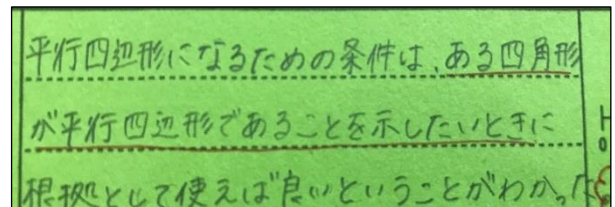 平行四辺形になるための条件は、ある四角形
が平行四辺形であることを示したいときに
根拠として使えば良いということがわかった